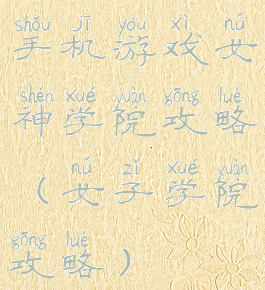 shǒu jī yóu xì nǚ
手机游戏女
shén xué yuàn gōng lüè
神学院攻略
nǚ zǐ xué yuàn
(女子学院
gōng lüè
攻略)